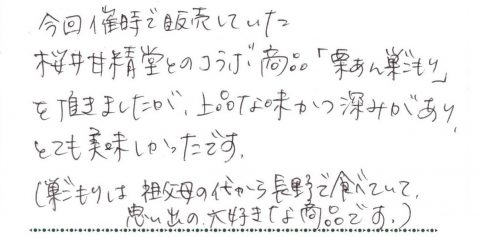 今回催時で販売していた
桜井甘精堂とのコラボ商品「栗あん巣ごもり」
を頂きましたが、上品な味かつ深みがあり、
とても美味しかったです。
(巣ごもりは祖父母の代から長野で食べていて、
思い出の、大好きな商品です。)